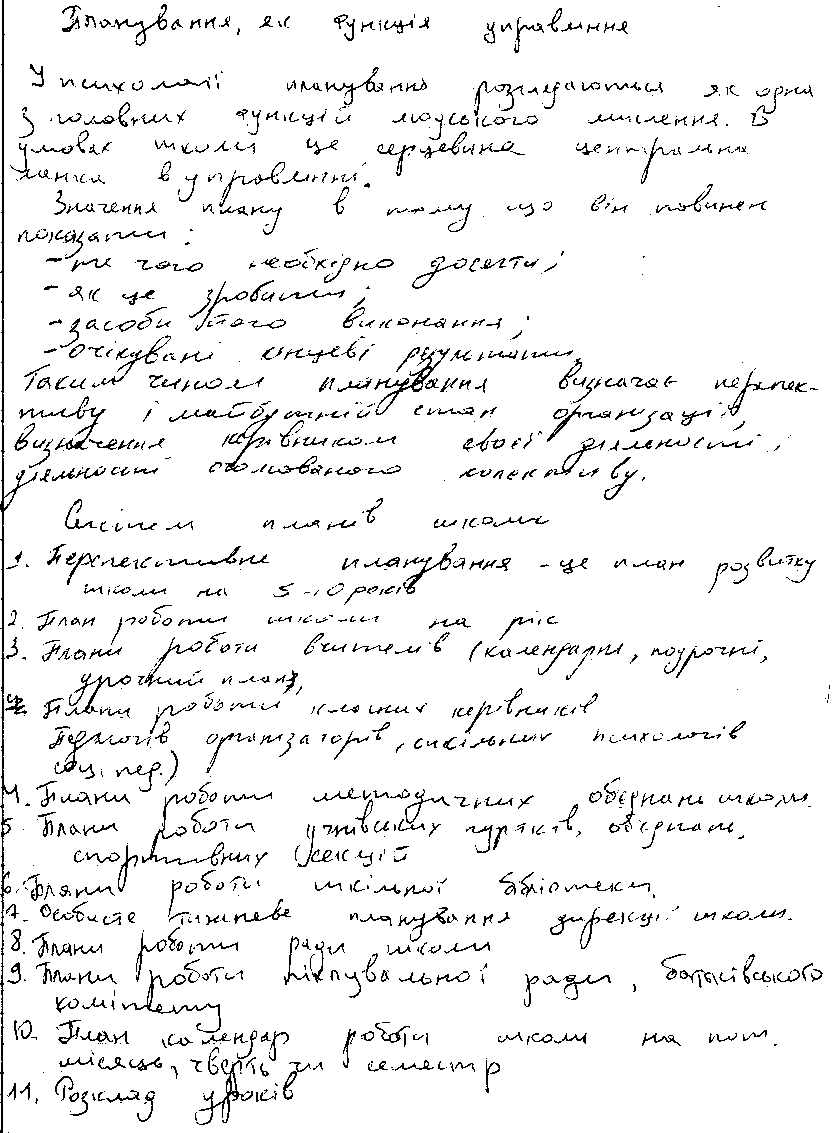 Планування, як функція управління
У психології планування розглядається як одна
з головних функцій людського мислення. В
умовах школи це серцевина центральна
ланка в управлінні.
Значення плану в тому що він повинен
показати:
- те чого необхідно досягти;
- як це зробити;
- засоби його виконання;
- очікувані кінцеві результати.
Таким чином планування визначає перспек-
тиву і майбутній стан організації,
визначення керівником своєї діяльності і
діяльності очолюваного колективу.
Систем планів школи
1. Перспективне планування - це план розвитку
школи на 5-10 років
2. План роботи школи на рік
3. Плани роботи вчителів (календарні, поурочні,
урочний план),
4. Плани роботи класних керівників
Педагогів організаторів, шкільних психологів
соц. пед.)
4. Плани роботи методичних обєднань школи.
5. Плани роботи учнівських гуртків, обєднань,
спортивних секцій
6. Плани роботи шкільної бібліотеки.
7. Особисте тижневе планування дирекції школи.
8. Плани роботи ради школи
9. Плани роботи піклувальної ради, батьківського
комітету
10. План календар роботи школи на пот.
місяць, чверть чи семестр
11. Розклад уроків